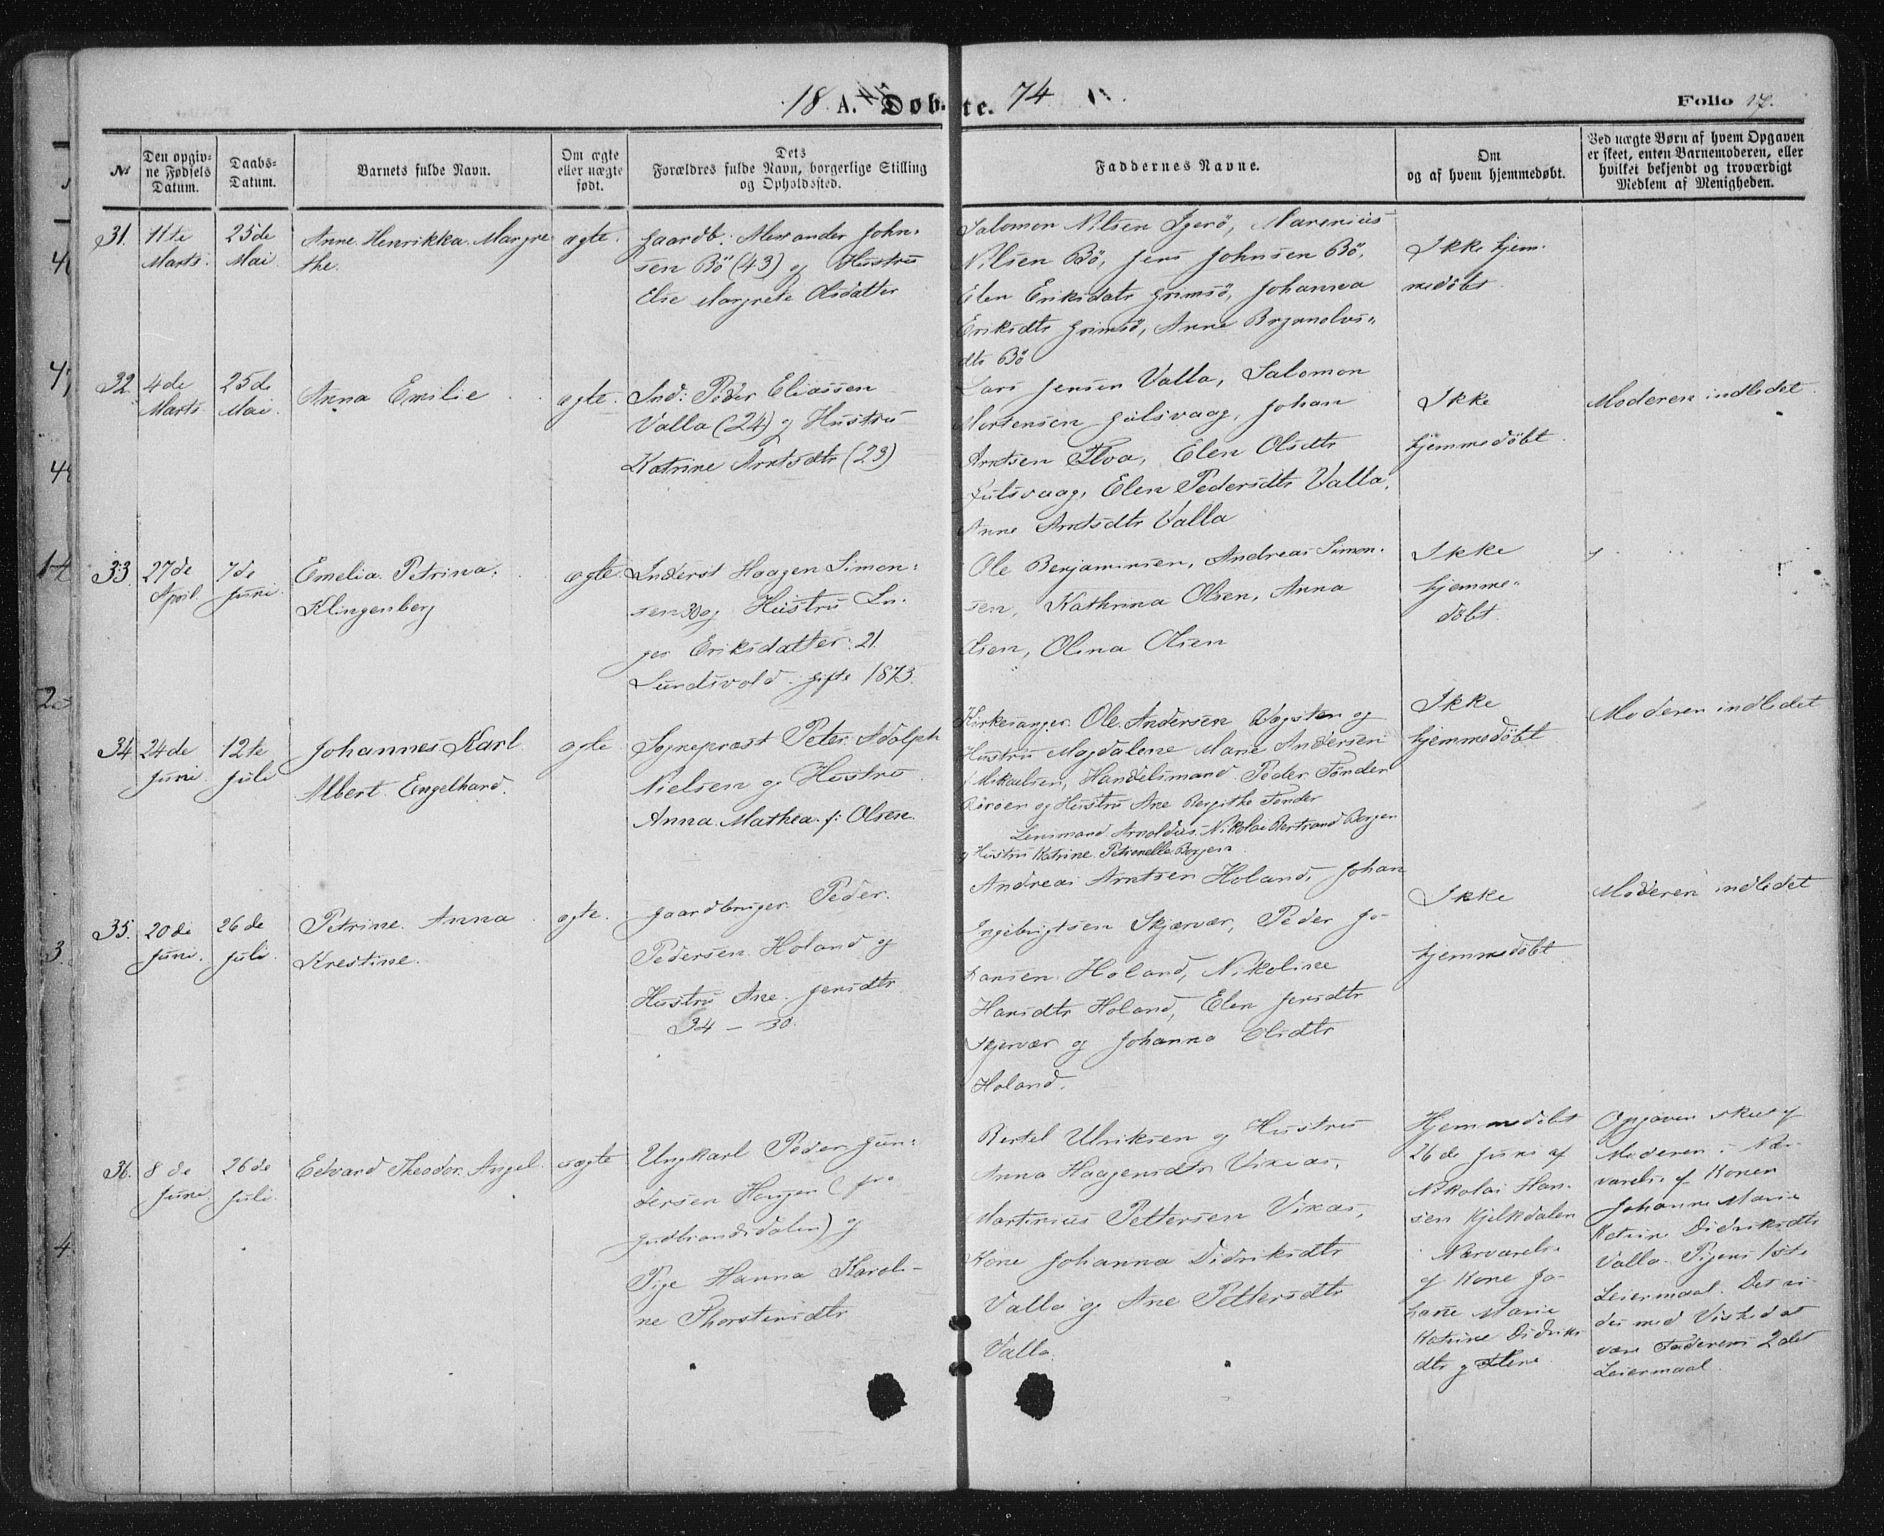 18 A. Døbte. 74
Folio 17.
No
Den opgivne Fødsels Datum.
Daabs-Datum.
Barnets fulde Navn.
Om ægte eller uægte født.
Dets Forældres fulde Navn, borgerlige Stilling og Opholdssted.
Faddernes Navne.
Om og af hvem hjemmedøbt.
Ved uægte Børn af hvem Opgaven er skeet, enten Barnemoderen, eller hvilket bekjendt og troværdigt Medlem af Menigheden.
31.
11te
Marts.
25de
Mai.
Anne Henrikka Margre
the.
ægte.
Gaardb. Alexander John-
sen Bö (43) og Hustru
Else Margrete Olsdatter
Salomon Nilsen Igerö, Marenius
Nilsen Bö, Jens Johnsen Bö,
Elen Eriksdatr Grimsö, Johanna
Eriksdtr Grimsö, Anne Brynolvs-
dtr Bö
Ikke hjem-
medöbt
32
4de
Marts
25de
Mai.
Anna Emilie
ægte.
Ind: Peder Eliassen
Valla (24) og Hustru
Katrine Arntsdtr (23)
Lars Jensen Valla, Salomon
Mortensen Gulsvaag, Johan
Arntsen Flva, Elen Olsdtr
Gulsvaag, Elen Pedersdtr Valla,
Anne Arntsdtr Valla
Ikke
hjemmedöbt.
Moderen indledet
33.
27de
April.
7de
Juni.
Emelia Petrina
Klingenberg
ægte
Inderst Haagen Simon-
sen 30 og Hustru In-
ger Eriksdatter 21.
Sundsvold. gifte 1873.
Ole Benjaminsen, Andreas Simon-
sen, Kathrina Olsen, Anna
Olsen, Olina Olsen
Ikke
hjemme-
döbt.
34
24de
Juni.
12te
Juli
Johannes Karl
Albert Engelhard.
ægte
Sognepræst Peter Adolph
Nielsen og Hustru
Anna Mathea f: Olsen.
Kirkesanger Ole Andersen Vogsten og
Hustru Magdalene Marie Andersen
f Mikaelsen, Handelsmand Peder Tønder
og Hustru Ane Bergithe Tønder
Lensmand Arnoldus Nikolai Bertrand Borgen
og Hustru Katrine Petronelle Borgen.
Ikke
hjemmedöbt
Moderen indledet
35.
20de
Juni.
26de
Juli.
Petrine Anna
Krestine.
ægte.
Gaardbruger Peder
Pedersen Holand og
Hustru Ane Jensdtr
34 – 30.
Andreas Arntsen Holand, Johan
Ingebrigtsen Skjærvær, Peder Jo-
hansen Holand, Nikoline
Hansdtr Holand, Elen Jensdtr
Skjervær og Johanna Olsdtr
Holand.
Ikke
hjemmedöbt
Moderen indledet
36.
8de
Juni
26de
Juli.
Edvard Theodor Angel
uægte
Ungkarl Peder Gun-
dersen Haugen (fra
Gudbrandsdalen) og
Pige Hanna Karoli-
ne Thorstensdtr
Bertel Ulriksen og Hustru
Anna Haagensdtr Vixaas,
Martinius Pettersen Vixas,
Kone Johanna Didriksdtr
Valla og Ane Pettersdtr
Valla.
Hjemmedöbt
26de Juni af
Nikolai Han-
sen Kjelkdalen
Nærværelse
af Kone Jo-
hane Marie
Katrine Didriks
dtr og Flere
Opgaven skeet af
Moderen i Nær-
værelse af Konen
Johanne Marie
Katrine Didriksdtr
Valla. Pigens 1ste
Leiermaal. Det vi-
des med Vished at
være Faderens 2det
Leiermaal.